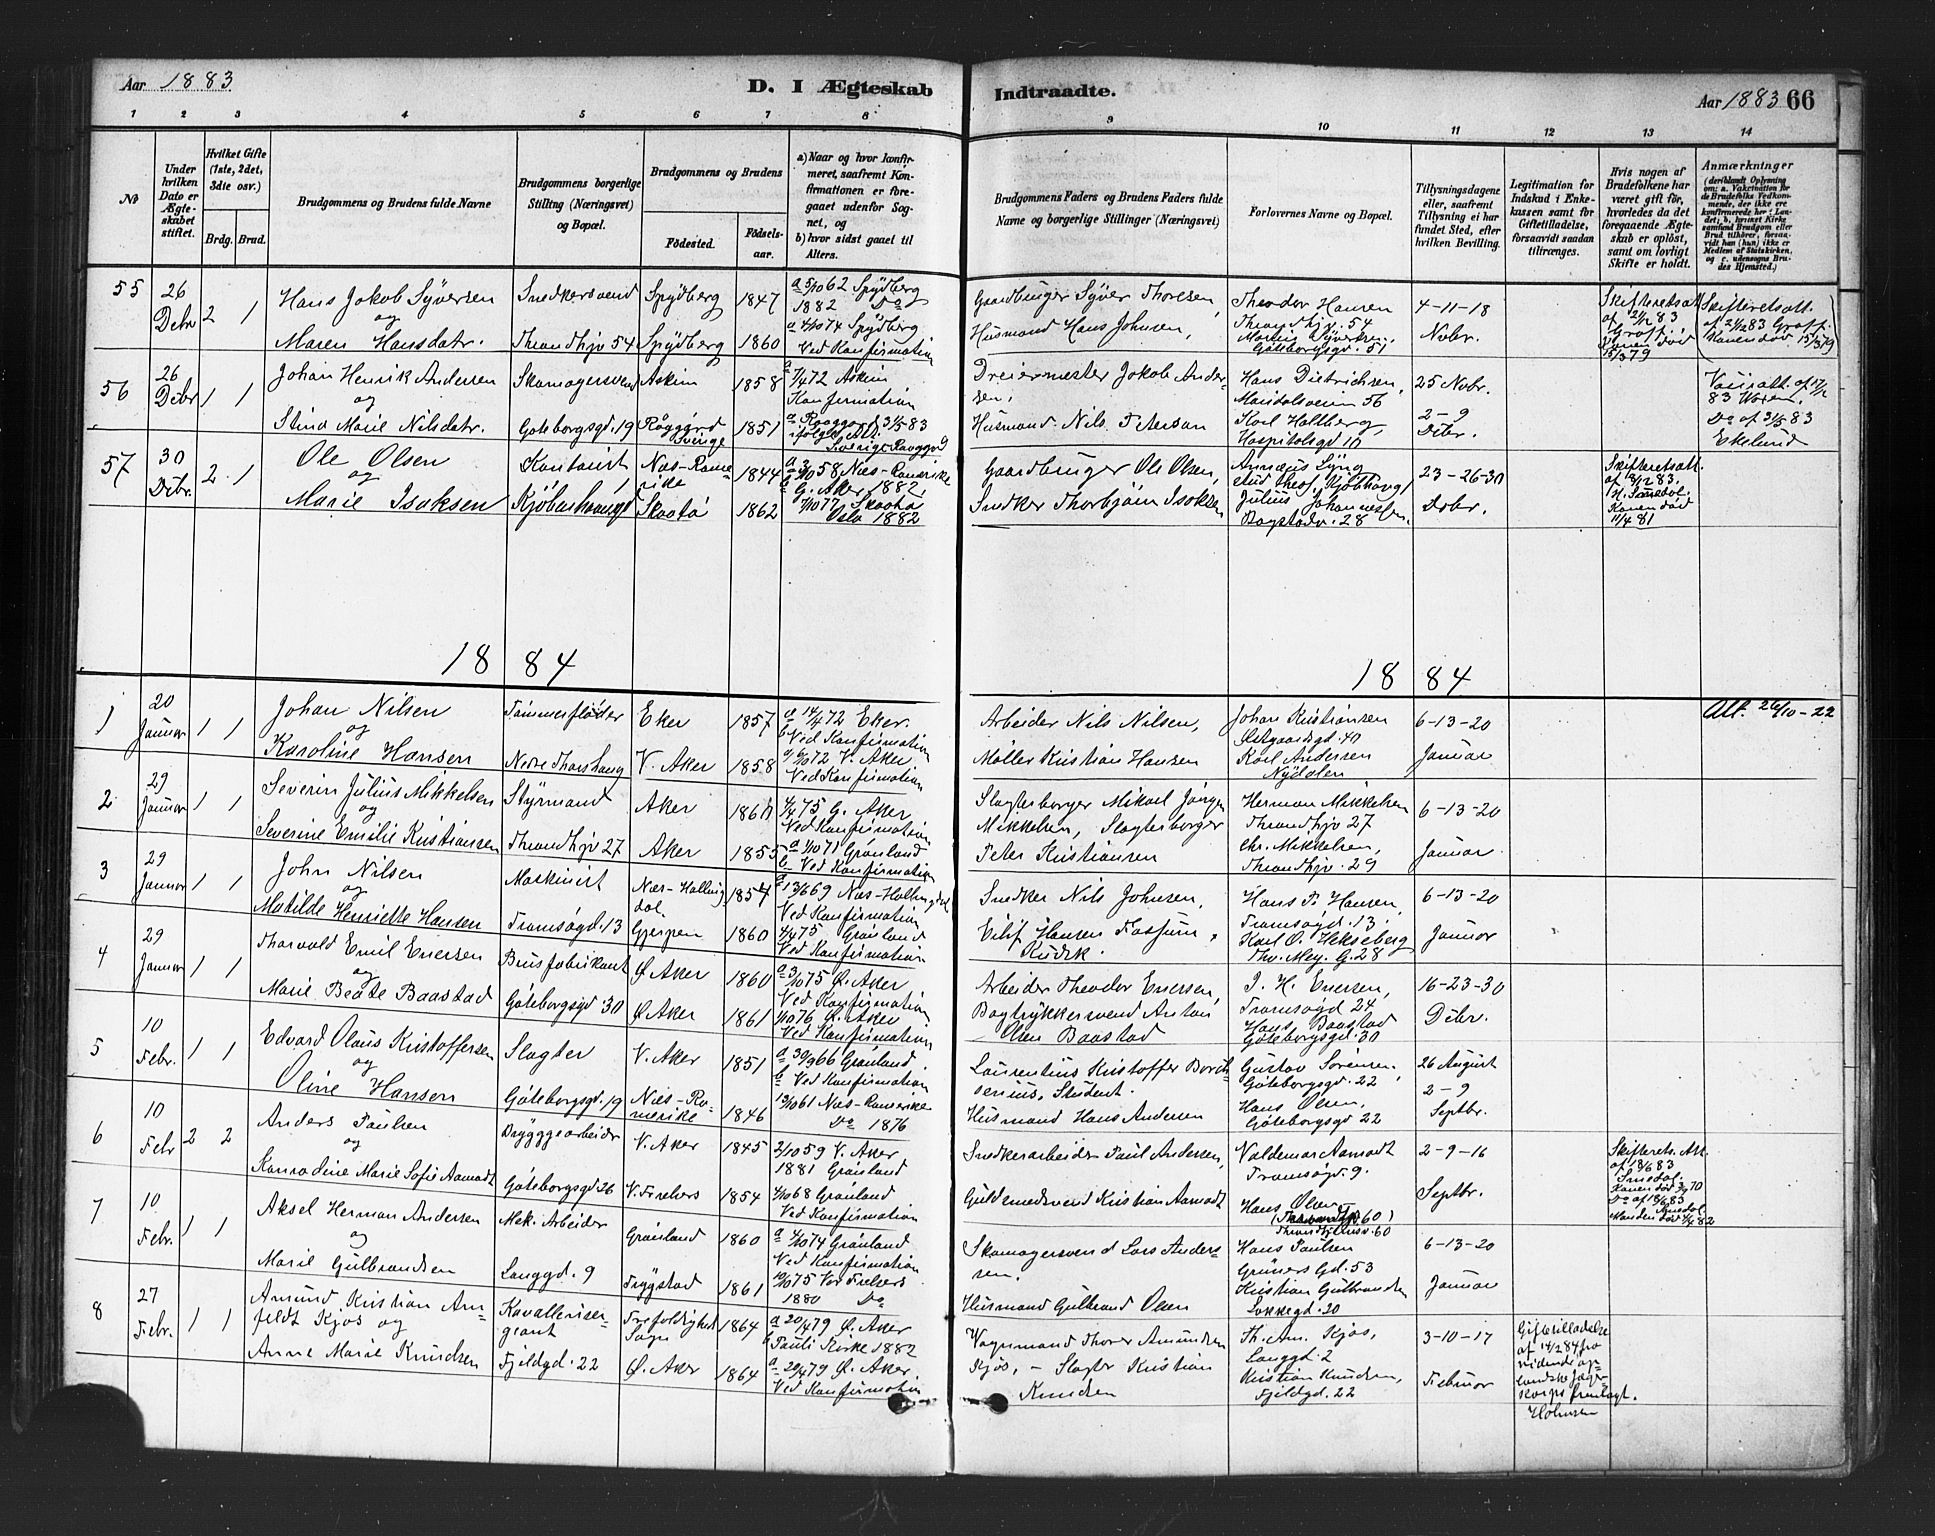 Aar 1883
D. I Ægteskab Indtraadte.
Aar 1883 66
1 2 3 4 5 6 7 8 9 10 11 12 13 14
No
Under hvilken Dato er Ægteskabet stiftet.
Hvilket Gifte (1ste, 2det, 3die osv.)
Brdg. Brud.
Brudgommens og Brudens fulde Navne
Brudgommens borgerlige Stilling (Næringsvei) og Bopæl.
Brudgommens og Brudens
Fødested. Fødselsaar.
a) Naar og hvor konfirmeret, saafremt Konfirmationen er foregaaet udenfor Sognet, og
b) hvor sidst gaaet til Alters.
Brudgommens Faders og Brudens Faders fulde Navne og borgerlige Stillinger (Næringsvei)
Forlovernes Navne og Bopæl.
Tillysningsdagene eller, saafremt Tillysning ei har fundet Sted, efter hvilken Bevilling.
Legitimation for Indskud i Enkekassen samt for Giftetilladelse, forsaavidt saadan tiltrænges.
Hvis nogen af Brudefolkene har været gift før, hvorledes da det foregaaende Ægteskab er opløst, samt om lovligt Skifte er holdt.
Anmærkninger
(deriblandt Oplysning om: a. Vakcination for de Brudefolks Vedkommende, der ikke ere konfirmerede her i Landet; b. hvilket Kirkesamfund Brudgom eller Brud tilhører, forsaavidt han (hun) ikke er Medlem af Statskirken, og c. udensogns Brudes Hjemsted.)
55 26 Debr 2 1
Hans Jakob Syversen og Maren Hansdatr.
Snedkersvend Throndhjv 54
Spydberg 1847
Spydberg 1860
a 5/10 62 Spydberg
1882 Do
a 4/10 74 Spydberg
Ved Konfirmation
Gaardbruger Syver Thoresen,
Husmand Hans Johnsen,
Theodor Hansen
Throndhjv. 54
Martin Syvertsen
Göteborgsgd. 51
4-11-18
Nvbr.
Skifteretsatt.
af 21/12 83
Grøtt.
Konen død
15/3 79
Skifteretsatt.
af 21/12 83 Grøtt.
Konen død 15/3 79
56 26 Debr 1 1
Johan Henrik Andersen
og
Stina Marie Nilsdatr.
Skomagersvend
Gøteborgsgd. 19
Askim 1858
Røggärd Sverige 1851
a 7/4 72 Askim
Konfirmation
Dreiermester Jakob Andersen,
Husmand Nils Petersen
Hans Dietrichsen,
Maridalsveien 56
Karl Holtberg,
Hospitalsgd 10
25 Novbr.
2-9
Debr.
57 30 Debr. 2 1
Ole Olsen
og
Marie Isaksen
Kontorist,
Kjøbenhavngd
Næs-Romerike 1844
Skaatø 1862
G. Aker 1882
7/10 77 Skaatø
Oslo 1882
Gaardbruger Ole Olsen,
Snedker Thorbjørn Isaksen
Annæus Syng
stud theol, Kjøbhavngd
Julius Johannessen,
Bogstadv. 28
23-26-30
Debr.
Skifteretsatt.
af 18/12 83.
Konen død
11/4 81
1884
1884
1 20 Januar 1 1
Johan Nilsen
og
Karoline Hansen
Tømmerfløder
Nedre Thorshaug
Eker 1857
V. Aker 1858
a 14/4 72 Eker.
b Ved Konfirmation
a 6/10 72 V. Aker
Ved Konfirmation
Arbeider Nils Nilsen,
Møller Kristian Hansen
Johan Kristiansen
Karl Andersen
Nydalen
6-13-20
Januar
Att. 26/10-22
2 29 Januar 1 1
Severin Julius Mikkelsen
og
Severine Emilie Kristiansen
Styrmand
Throndhjv 27
Aker 1860
Aker 1855
4/4 75 G. Aker
Ved Konfirmation
a 1/10 71 Grønland
b Ved Konfirmation
Slagterborger Mikael Jørgen
Mikkelsen, Slagterborger
Peter Kristiansen
Herman Mikkelsen
Throndhjv 27
Chr. Mikkelsen,
Throndhjv. 29
6-13-20
Januar
3 29 Januar 1 1
John Nilsen
og
Matilde Henriette Hansen
Maskinist
Tromsøgd. 13
Næs-Hallingdal. 1854
Gjerpen 1860
a 13/6 69 Næs-Hallingdal
Ved Konfirmation
4/4 75 Grønland
Ved Konfirmation
Snedker Nils Johnsen,
Eilif Hansen Fossum,
Kudsk.
Hans P. Hansen,
Tromsøgd. 13
Karl O. Hekseberg
Thv. Mey. G. 28
6-13-20
Januar
4 29 Januar 1 1
Thorvald Emil Enersen
og
Marie Beate Baastad
Brusfabrikant
Göteborgsgd. 30
Ø. Aker 1860
Ø. Aker 1861
a 3/10 75 Ø. Aker
Ved Konfirmation
1/10 76 Ø. Aker
Ved Konfirmation
Arbeider Theodor Enersen,
Bogtrykkersvend Anton
Olsen Baastad
I. H. Enersen,
Tromsøgd 24
Hans Baastad
Göteborgsgd. 30
16-23-30
Debr.
5 10 Febr. 1 1
Edvard Olaus Kristoffersen
og
Oline Hansen
Slagter
Göteborgsgd. 19
V. Aker 1851
Næs-Romerike 1846
a 30/9 66 Grønland
b Ved Konfirmation
Næs-Romerike
Do 1876
Laurentius Kristoffer Borchsenius, Student.
Husmand Hans Andersen
Gustav Sörensen,
Göteborgsgd. 22
Hans Olsen,
Göteborgsgd 22
26 August
2-9
Septbr.
6 10 Febr 2 2
Anders Paulsen
og
Konradine Marie Sofie Aamodt
Bryggearbeider
Göteborgsgd 26
V. Aker 1845
V. Frelsers 1854
2/10 59 V. Aker
1881 Grønland
4/10 68 Grønland
Ved Konfirmation
Snedkerarbeider Paul Andersen,
Guldsmedsvend Kristian Aamodt
Valdemar Aamodt
Tromsøgd. 9.
Hans Olsen
Throndhjemsv. 60
2-9-16
Septbr.
Skifterets. Att.
af 18/6 83
Smedal.
Do af 18/6 83
7 10 Febr. 1 1
Aksel Herman Andersen
og
Marie Gulbrandsen
Mek. Arbeider
Langgd. 9
Grønland 1860
Trygstad 1861
a 4/10 74 Grønland
Ved Konfirmation
10/10 75 Vor Frelsers
1880 Do
Skomagersvend Lars Andersen.
Husmand Gulbrand Olsen
Hans Paulsen
Grüners Gd. 53
Kristian Gulbrandsen
Lakkegd. 20
6-13-20
Januar
8 27 Febr. 1 1
Amund Kristian Amfeldt Kjos og
Anne Marie Knudsen
Kavallerisergeant
Fjeldgd. 22
Trefoldighed Sogn 1864
Ø. Aker 1864
a 20/4 79 Ø. Aker
b Pauli Kirke 1882
a 20/4 79 Ø. Aker.
Ved Konfirmation
Vognmand Thorer Amundsen
Kjos, – Slagter Kristian
Knudsen
Th. Am. Kjos,
Langgd. 2
Kristian Knudsen,
Fjeldgd. 22
3-10-17
Februar
Giftetilladelse
af 14/2 84 fra